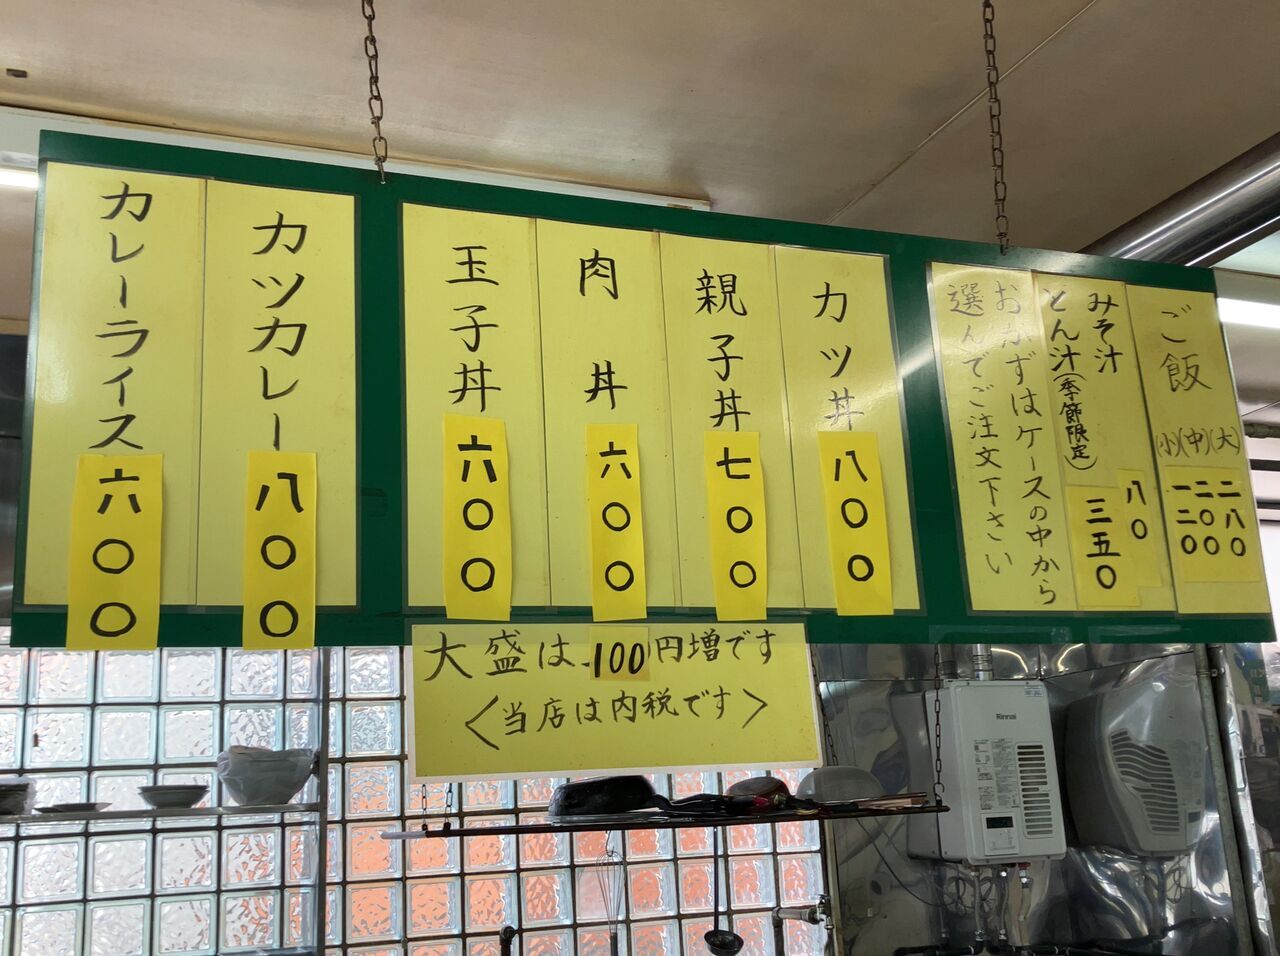 ご飯
(大) 二八〇
(中) 二〇〇
(小) 一二〇
みそ汁 八〇
とん汁(季節限定) 三五〇
おかずはケースの中から
選んでご注文下さい
カツ丼 八〇〇
親子丼 七〇〇
肉丼 六〇〇
玉子丼 六〇〇
カツカレー 八〇〇
カレーライス 六〇〇
大盛は100円増です
<当店は内税です>
Rinnai